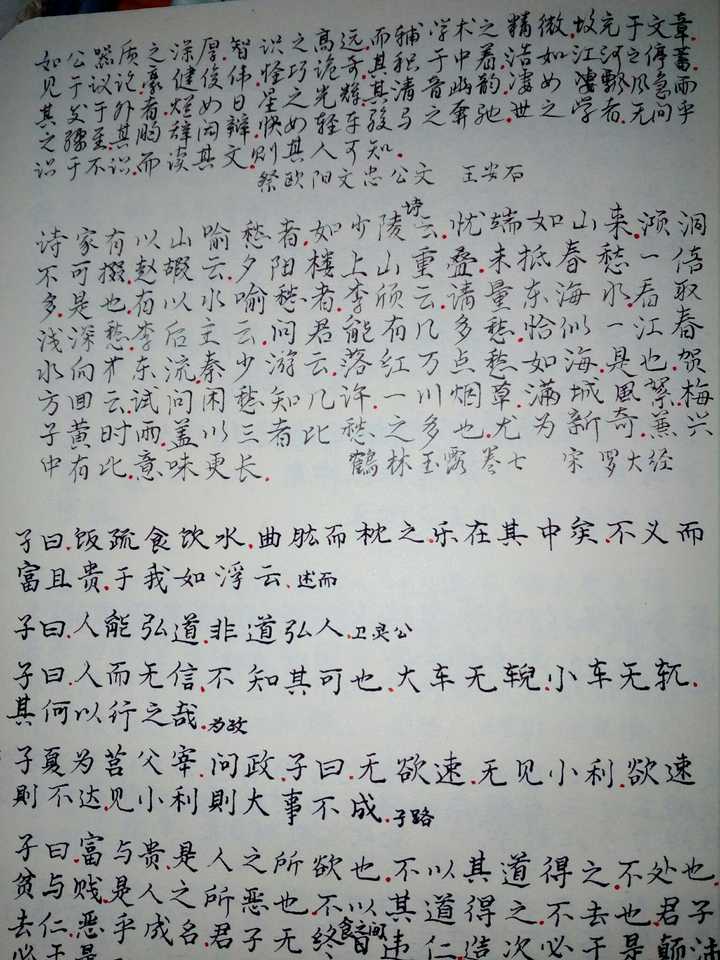 如公器质之深厚.智识之高远.而辅学术之精微.故充于文章.
见于议论.豪健俊伟.怪巧诡奇.其积于中者.浩如江河之停蓄.
其发于外者.烂如日星之光辉.其清音幽韵.凄如飘风急雨
之骤至.其 辞闳辩.快如轻车骏马之奔驰.世之学者.无问乎
识于不识.而读其文.则其人可知.
祭欧阳文忠公文 王安石
诗家有以山喻愁者.如少陵诗云.忧端如山来.澒洞
不可掇.赵嘏云.夕阳楼上山重叠.未抵春愁一倍
多.是也.有以水喻愁者.李颀云.请量东海水.看取
浅深愁.李后主云.问君能有几多愁.恰似一江春
水向东流.秦少游云.落红万点愁如海.是也.贺
方回云.试问闲愁知几许.一川烟草.满城風絮.梅
子黄时雨.盖以三者比愁之多也.尤为新奇.兼兴
中有比.意味更长.
鶴林玉露 卷七 宋 罗大经
子曰.饭疏食饮水.曲肱而枕之.乐在其中矣.不义而
富且贵.于我如浮云.述而
子曰.人能弘道.非道弘人.卫灵公
子曰.人而无信.不知其可也.大车无輗.小车无軏.
其何以行之哉.为政
子夏为莒父宰.问政.子曰.无欲速.无见小利.欲速
則不达.见小利則大事不成.子路
子曰.富与贵.是人之所欲也.不以其道得之.不处也.
贫与贱.是人之所恶也.不以其道得之.不去也.君子
去仁.恶乎成名.君子无终食之间违仁.造次必于是.颠沛
必于是